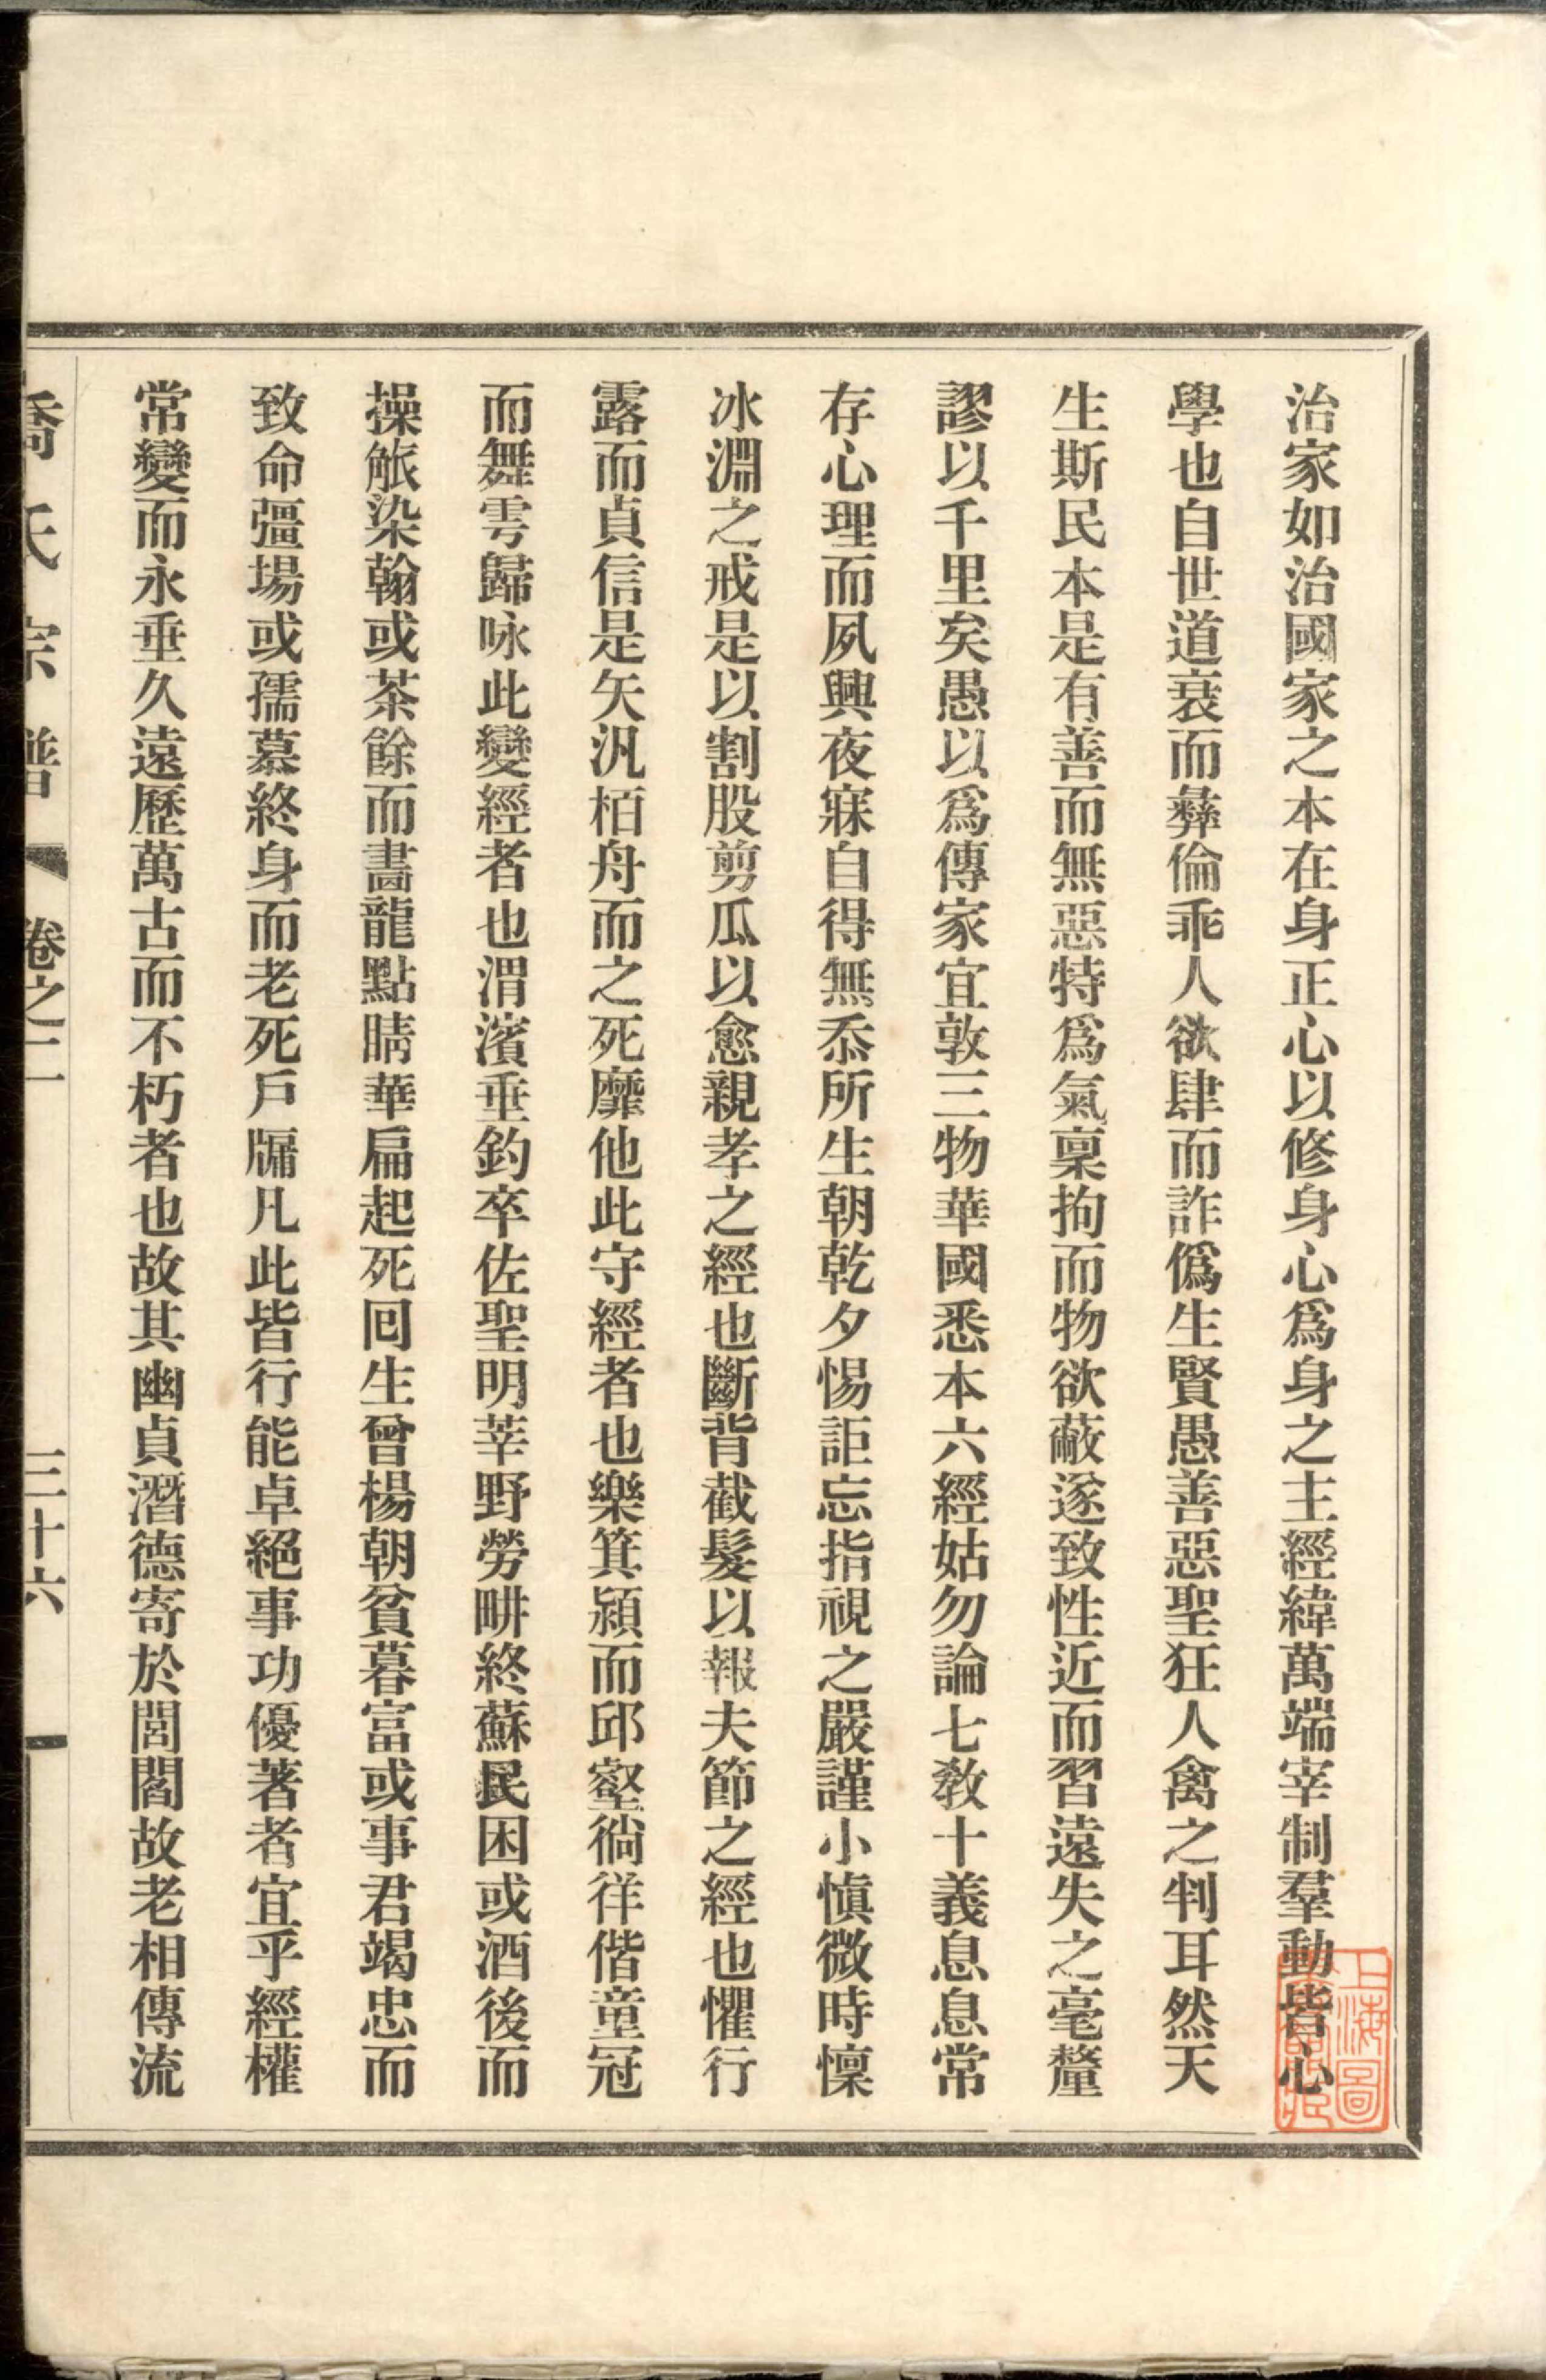 治家如治國家之本在身正心以修身心爲身之主經緯萬端宰制羣動皆心
學也自世道衰而彝倫乖人欲肆而詐僞生賢愚善惡聖狂人禽之判耳然天
生斯民本是有善而無惡特爲氣稟拘而物欲蔽遂致性近而習遠失之毫釐
謬以千里矣愚以爲傳家宜敦三物華國悉本六經姑勿論七敎十義息息常
存心理而夙興夜寐自得無忝所生朝乾夕惕詎忘指視之嚴謹小愼微時懍
冰淵之戒是以割股剪瓜以愈親孝之經也斷背截髮以報夫節之經也懼行
露而貞信是矢汎栢舟而之死靡他此守經者也樂箕潁而邱壑徜徉偕童冠
而舞雩歸咏此變經者也渭濱垂釣卒佐聖明莘野勞畊終蘇民困或酒後而
操觚染翰或茶餘而畵龍點睛華扁起死回生曾楊朝貧暮富或事君竭忠而
致命彊場或孺慕終身而老死戶牖凡此皆行能卓絕事功優著者宜乎經權
常變而永垂久遠歷萬古而不朽者也故其幽貞潛德寄於閭閻故老相傳流
喬氏宗譜 卷之二 三十六
上海圖